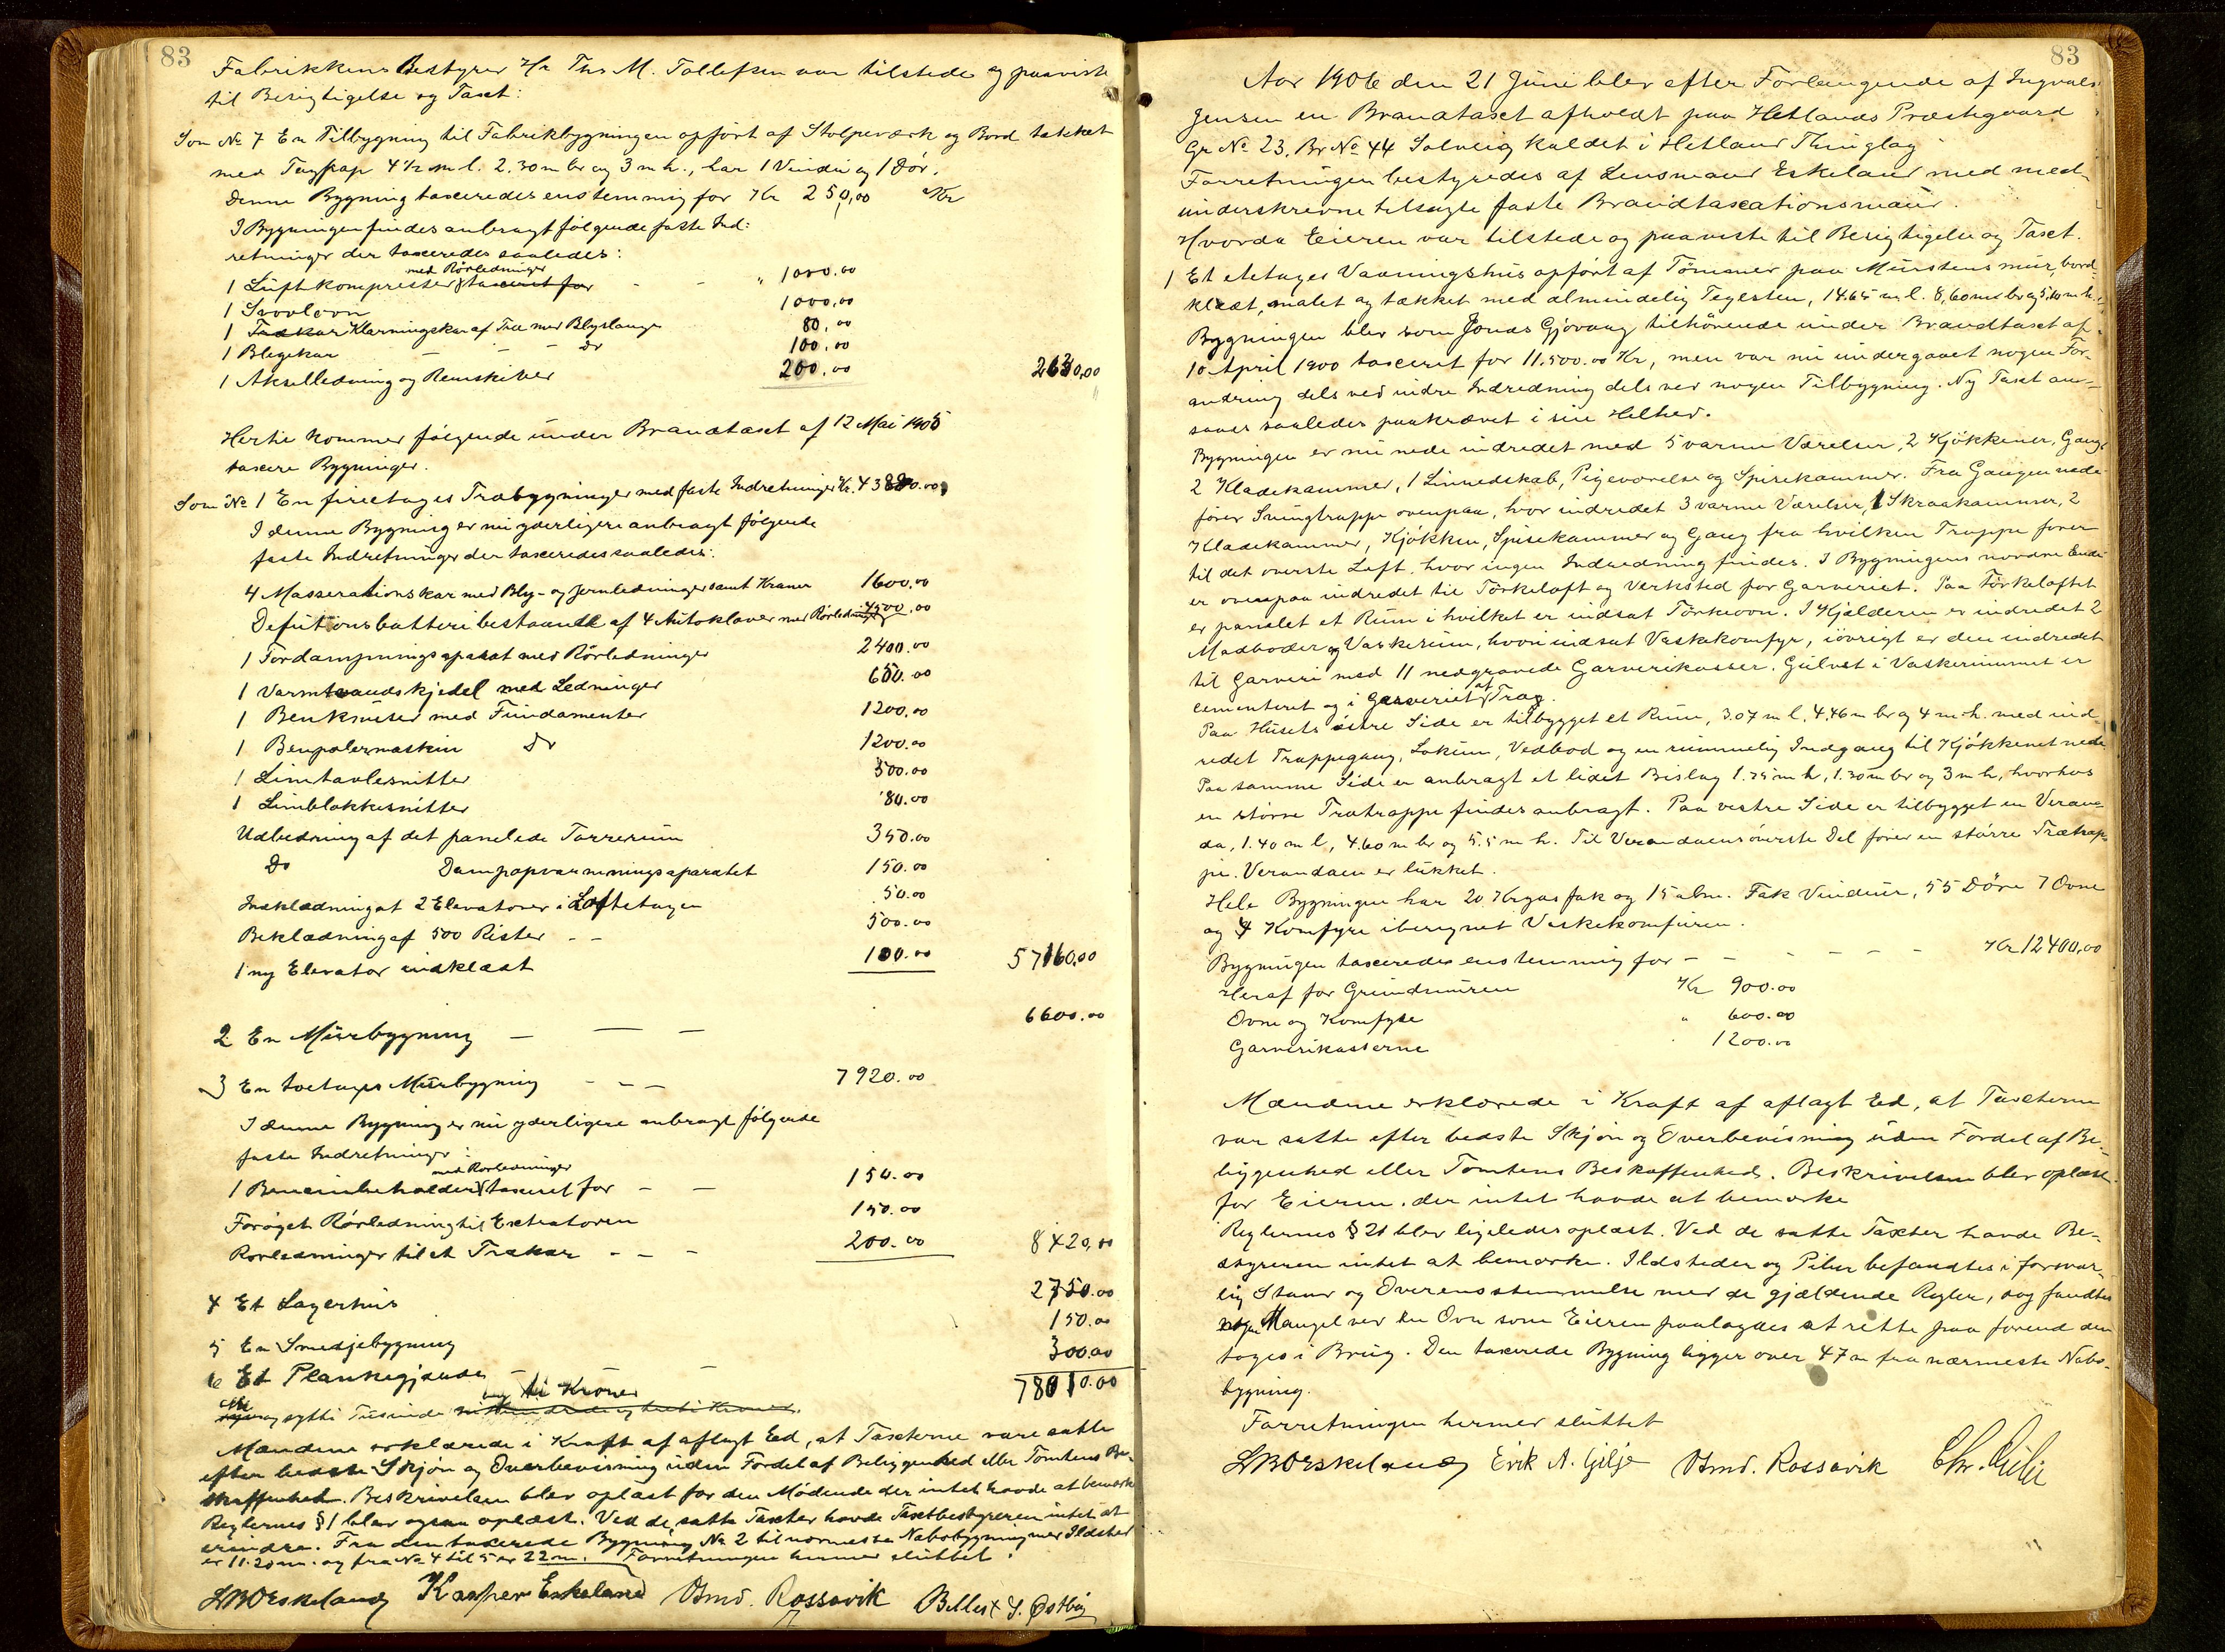 83
Fabrikkens Bestyrer Hr Ths M. Tollefsen var tilstede og paaviste
til Besigtigelse og Taxt:
Som No 7 En Tilbygning til Fabrikbygningen opført af Stolpeværk og Bord tækket
med Tagpap 4½ m l. 2.30 m br og 3 m h., har 1 Vindu og 1 Dör.
Denne Bygning taxeredes enstemmig for Kr 250,00 Kr
I Bygningen findes anbragt følgende faste Ind:
retninger der taxeredes saaledes:
1 Luftkompresser med Rörledninger taxeret for - - " 1000.00
1 Svovlovn 1000,00
1 Klarningskar af Træ med Blyslange 80,00
1 Blegekar - - - do 100,00
1 Akselledning og Remskiver 200,00 2630,00
Hertil kommer følgende under Brandtaxt af 12 Mai 1905
taxere Bygninger.
Som No 1 En fireetages Træbygninger med faste Indretninger Kr. 43880.00
I denne Bygning er nu yderligere anbragt følgende
faste Indretninger der taxeredes saaledes:
4 Masserationskar med Bly- og Jernledninger samt Kraner 1600.00
Defutionsbatteri bestaaende af 4 Autoklaver med Rörledninger 4500.00
1 Fordampningsaparat med Rörledninger 2400.00
1 Varmtvandskjedel med Ledninger 650.00
1 Benknuser med Fundamenter 1200.00
1 Benpolermaskin Do 1200.00
1 Limtavlesnitter 500.00
1 Limblokkesnitter 80.00
Udbedring af det panelede Tørrerum 350.00
Do Dampopvarmningsaparatet 150.00
Inklædning at 2 Elevatorer i Loftetagen 50.00
Beklædning af 500 Rister - - 500.00
1 ny Elevator indklædt 100.00 57160.00
2 En Mürbygning - - - 6600.00
3 En toetages Mürbygning - - - 7920.00
I denne Bygning er nu yderligere anbragt følgende
faste Indretninger:
1 Benzinbeholder med Rörledninger taxeret for - - 150.00
Forøget Rörledning til Extraktoren 150.00
Rörledninger til et Trækar - - - 200.00 8420,00
4 Et Lagerhus 2750.00
5 En Smedjebygning 150.00
6 Et Plankegjærde - - 300.00
78010.00
og sytti Tusinde og ti Kroner
Mændene erklærede i Kraft af aflagt Ed, at Taxterne vare satte
efter bedste Skjøn og Overbevisning uden Fordel af Beliggenhed eller Tomtens Be-
skaffenhed. Beskrivelsen blev oplæst for den Mødende der intet havde at bemærke
Reglernes § 1 blev ogsaa oplæst. Ved de satte Taxter havde Taxtbestyreren intet at
erindre. Fra den taxerede Bygning No 2 til nærmeste Nabobygning med Ildsted
er 11.20 m. og fra No 4 til 5 er 22 m. Forretningen hermed sluttet.
Eskeland Kasper Eskeland Osmd. Rossavik Y. Østbøj
83
Aar 1906 den 21 Juni blev efter Forlangende af Ingvald
Jensen en Brandtaxt afholdt paa Hetlands Præstegaard
Gr No 23. Br No 44 Solveig kaldet i Hetland Thinglag
Forretningen bestyredes af Lensmand Eskeland med med-
underskrevne tilsagte faste Brandtaxationsmænd.
Hvorda Eieren var tilstede og paaviste til Besigtigelse og Taxt.
1 Et etetages Vaaningshus opført af Tömmer paa Murstensmur, bord-
klædt, malet og tækket med almindelig Tegesten, 14.65 m l. 8,60 m br og 5,60 m h.
Bygningen blev som Jonas Gjøvaag tilhörende under Brandtaxt af
10 April 1900 taxeret for 11.500.00 Kr, men var nu undergaaet nogen For-
andring dels ved indre Indredning dels ved nogen Tilbygning. Ny Taxt an-
saaes saaledes paakrævet i sin Helhed.
Bygningen er nu nede indredet med 5 varme Værelser, 2 Kjøkkener, Gang,
2 Klædekammer, 1 Linnedskab, Pigeværelse og Spisekammer. Fra Gangen nede
fører Svingtrappe ovenpaa, hvor indredet 3 varme Værelser, 1 Skraakammer, 2
Klædekammer, Kjøkken, Spisekammer og Gang fra hvilken Trappe fører
til det øverste Loft, hvor ingen Indredning findes. I Bygningens nordre Ende
er ovenpaa indredet til Törkeloft og Verksted for Garveriet. Paa Törkeloftet
er panelet et Rum i hvilket er indsat Törkeovn. I Kjelderen er indredet 2
Madboder og Vaskerum, hvori indsat Vaskekomfyr, iövrigt er den indredet
til Garveri med 11 nedgravede Garverikasser. Gulvet i Vaskerummet er
cementeret og i Garveriet af Træ.
Paa Husets östre Side er tilbygget et Rum, 3.07 m l, 4.46 m br og 4 m h. med ind-
redet Trappegang, Lokum, Vedbod og en rummelig Indgang til Kjøkkenet nede
Paa samme Side er anbragt et lidet Bislag 1.75 m h, 1.30 m br og 3 m h, hvorhos
en större Trætrappe findes anbragt. Paa vestre Side er tilbygget en Veran-
da, 1.40 m l, 4.60 m br og 5.5 m h. Til Verandaens överste Del fører en større Trætrap-
pe. Verandaen er lukket.
Hele Bygningen har 20 Krysfak og 15 alm. Fak Vinduer, 55 Döre 7 Ovne
og 4 Komfyre iberegnet Vaskekomfuren.
Bygningen taxeredes enstemmig for - - - - - Kr 12400,00
Heraf for Grundmuren Kr 900.00
Ovne og Komfyre " 600.00
Garverikasserne 1200.00
Mændene erklærede i Kraft af aflagt Ed, at Taxterne
var satte efter bedste Skjøn og Overbevisning uden Fordel af Be-
liggenhed eller Tomtens Beskaffenhed. Beskrivelsen blev oplæst
for Eieren, der intet havde at bemærke
Reglernes § 21 blev ligeledes oplæst. Ved de satte Taxter havde Be-
styreren intet at bemærke. Ildsteder og Piber befandtes i forsvar-
lig Stand og Overensstemmelse med de gjældende Regler, dog fandtes
nogen Mangel ved en Ovn som Eieren paalagdes at rette paa forend den
toges i Brug. Den taxerede Bygning ligger over 47 m fra nærmeste Nabo-
bygning.
Forretningen hermed sluttet
Eskeland Erik A. Gilje Osmd. Rossavik Chr. Gilje